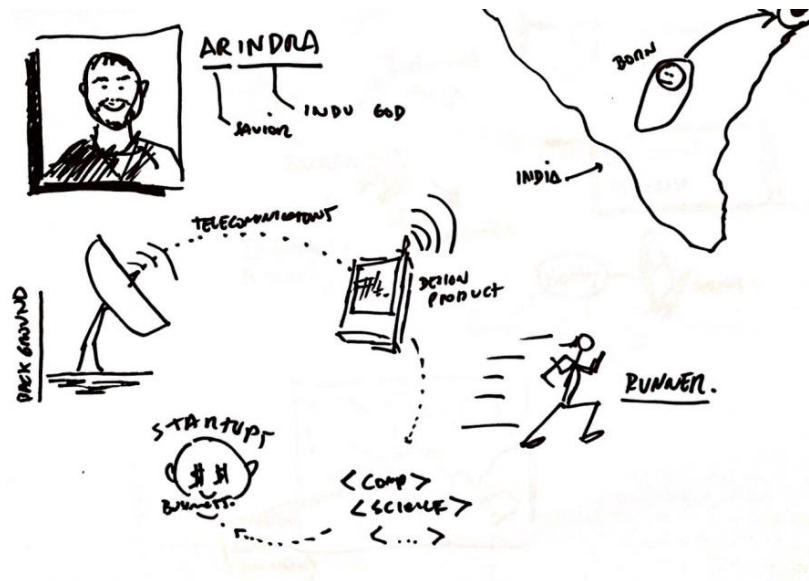 ARINDRA
SAVIOR
INDU GOD
BORN
INDIA
TELECOMUNICATIONS
BACKGROUND
DESIGN
PRODUCT
RUNNER.
STARTUPS
$ $
BUSINESS.
<COMP>
<SCIENCE>
<...>